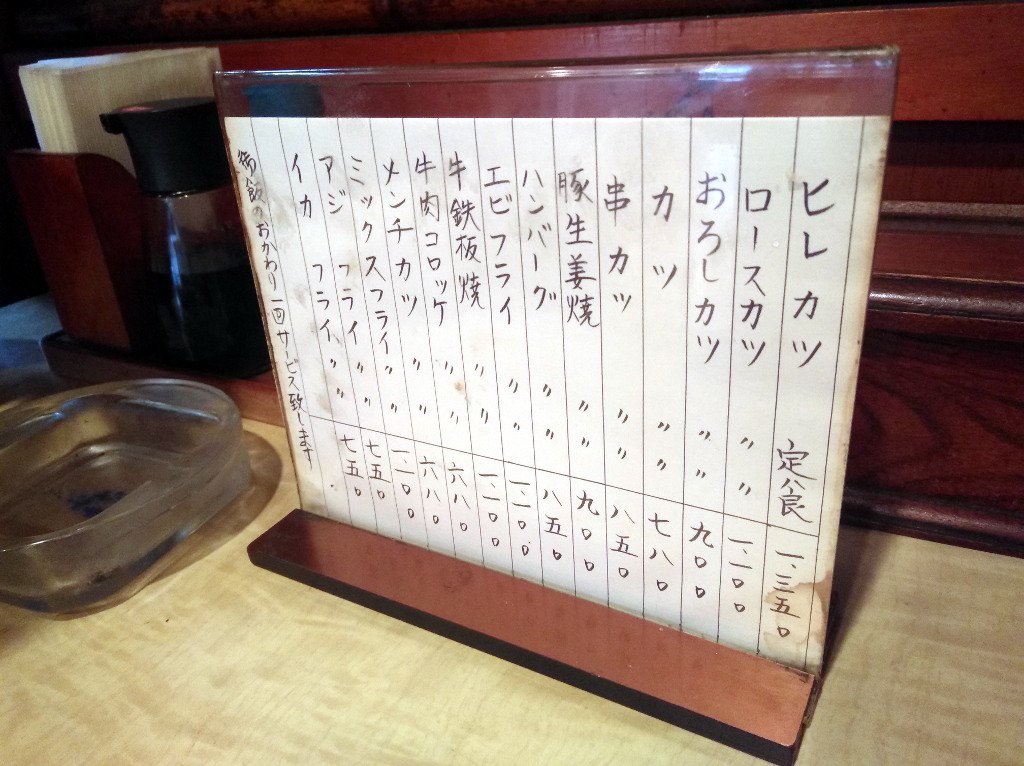 ヒレカツ 定食 一、三五〇
ロースカツ 〃 〃 一、一〇〇
おろしカツ 〃 〃 九〇〇
カツ 〃 〃 七八〇
串カツ 〃 〃 八五〇
豚生姜焼 〃 〃 九〇〇
ハンバーグ 〃 〃 八五〇
エビフライ 〃 〃 一、一〇〇
牛鉄板焼 〃 〃 一、一〇〇
牛肉コロッケ 〃 〃 六八〇
メンチカツ 〃 〃 六八〇
ミックスフライ 〃 〃 一、一〇〇
アジフライ 〃 〃 七五〇
イカフライ 〃 〃 七五〇
御飯のおかわり一回サービス致します